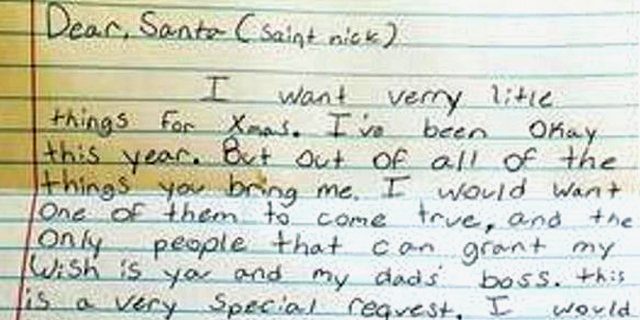 Dear, Santa (Saint nick)
I want verry litle
things for Xmas. I've been Okay
this year. But out of all of the
things you bring me. I would want
One of them to come true, and the
Only people that can grant my
Wish is you and my dads' boss. this
is a very Special request. I would